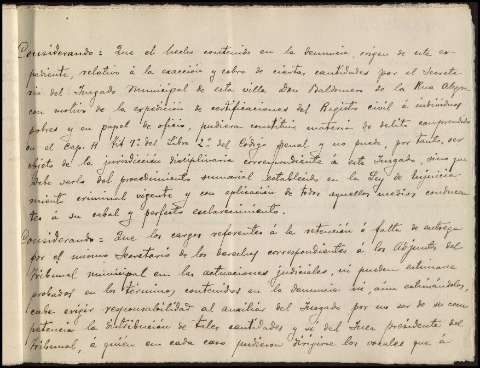 Considerando: Que el hecho contenido en la denuncia, origen de este ex-
pediente, relativo á la exacción y cobro de ciertas cantidades por el Secreta-
rio del Juzgado Municipal de esta villa Don Baldomero de la Rua
con motivo de la expedición de certificaciones del Registro civil á individuos
pobres y en papel de oficio, pudiera constituir materia de delito comprendido
en el Cap. Tit 7º del Libro 2º del Código penal y no puede, por tanto, ser
objeto de la jurisdicción disciplinaria correspondiente á este Juzgado, sino que
debe serlo del procedimiento sumarial establecido en la Ley de Enjuicia-
miento criminal vigente y con aplicación de todos aquellos medios conducen-
tes á su cabal y perfecto esclarecimiento.
Considerando: Que los cargos referentes á la retención ó falta de entrega
por el mismo Secretario de los derechos correspondientes á los Adjuntos del
Tribunal municipal en las actuaciones judiciales, ni pueden estimarse
probados en los términos contenidos en la denuncia ni aún estimándolos,
cabe exigir responsabilidad al auxiliar del Juzgado por no ser de su com-
petencia la distribución de tales cantidades y si del Juez presidente del
Tribunal, á quien en cada caso pudieron dirigirse los vocales que á